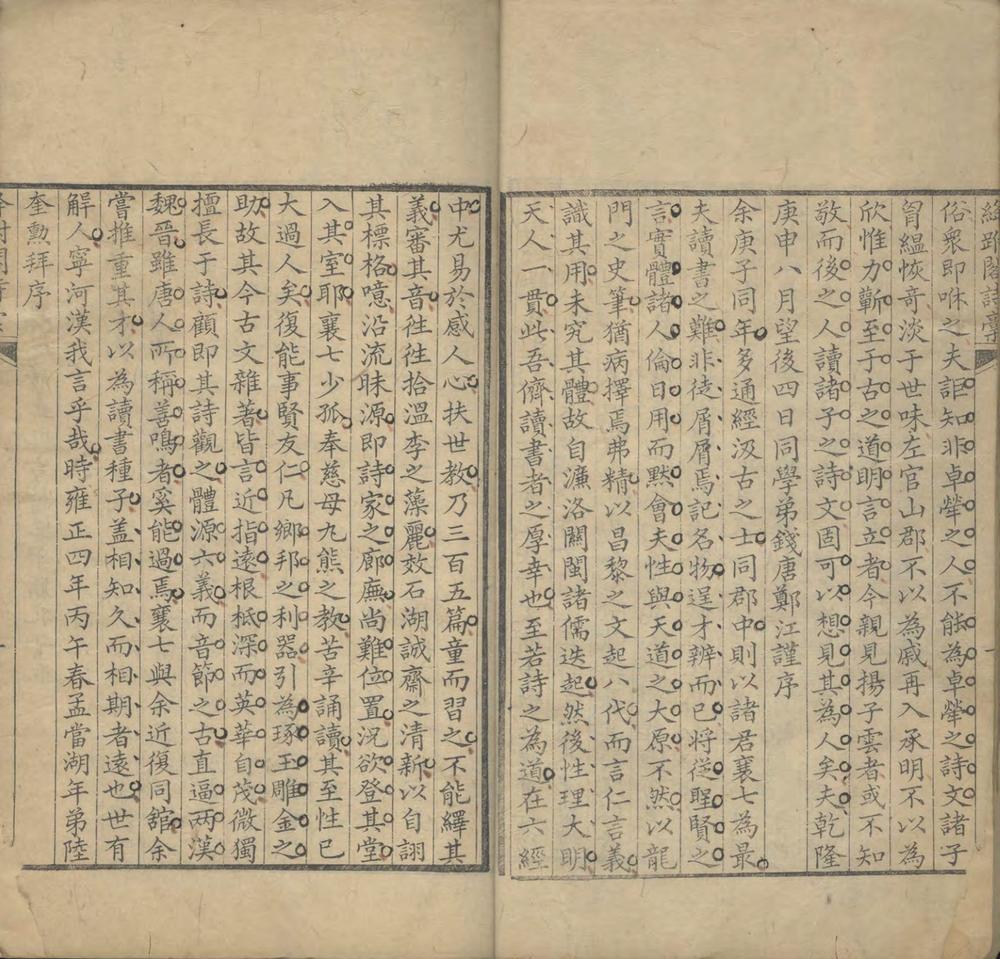 俗衆即咻之夫詎知非卓犖之人不能為卓犖之詩文諸子
胷緼恢奇淡于世味左官山郡不以為戚再入承明不以為
欣惟力蘄至于古之道明言立者今親見揚子雲者或不知
敬而後之人讀諸子之詩文固可以想見其為人矣夫乾隆
庚申八月望後四日同學弟錢唐鄭江謹序
余庚子同年多通經汲古之士同郡中則以諸君襄七為最
夫讀書之難非徒屑屑焉記名物逞才辨而已將從聖賢之
言實體諸人倫日用而默會夫性與天道之大原不然以龍
門之史筆猶病擇焉弗精以昌黎之文起八代而言仁言義
識其用未究其體故自濂洛關閩諸儒迭起然後性理大明
天人一貫此吾儕讀書者之厚幸也至若詩之為道在六經
中尤易於感人心扶世教乃三百五篇童而習之不能繹其
義審其音徃徃拾溫李之藻麗效石湖誠齋之清新以自詡
其標格噫沿流昧源即詩家之廊廡尚難位置況欲登其堂
入其室耶襄七少孤奉慈母丸熊之教苦辛誦讀其至性已
大過人矣復能事賢友仁凡鄉邦之利器引為琢玉雕金之
助故其今古文雜著皆言近指遠根柢深而英華自茂微獨
擅長于詩顧即其詩觀之體源六義而音節之古直逼兩漢
魏晉雖唐人所稱善鳴者奚能過焉襄七與余近復同舘余
嘗推重其才以為讀書種子盖相知久而相期者遠也世有
解人寧河漢我言乎哉時雍正四年丙午春孟當湖年弟陸
奎勲拜序